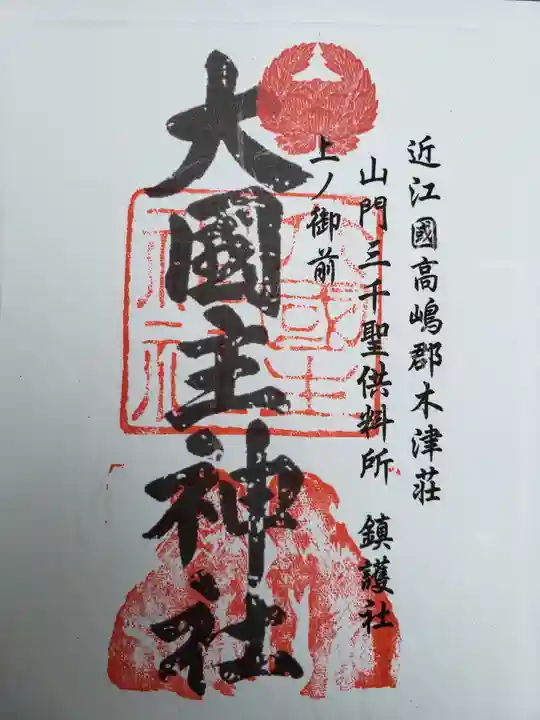 近江國高嶋郡木津荘
山門三千聖供料所 鎮護社
上ノ御前
大國主神社
大國主
神社